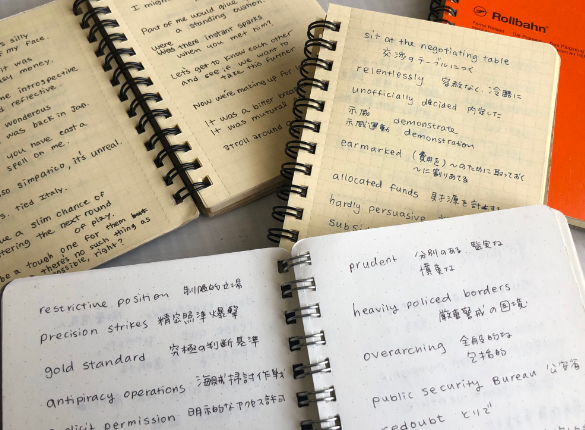 s silly
my face.
it was
sy money.
e introspective
reflective.
wonderous
was back in Jap.
you have cast a
spell on me.
so simpatico, it's unreal.
s. tied Italy.
e a slim chance of
tering the next round
of play.
be a tough one for them
there's no such thing as
possible, right?
I might
Part of me would give
a standing ovation.
were there instant sparks
was
when you met tom?
Let's get to know each other
and see if we want to
take this further
Now we're making up for l
It was a bitter
It was mutual
stroll around
sit at the negotiating table
交渉のテーブルにつく
relentlessly 容赦なく、冷酷に
unofficially decided 内定した
示威 demonstrate
示威運動 demonstration
earmarked (費用を)〜のために取っておく
〜に割りあてる
allocated funds
hardly persuasive
subsi
Rollbahn
restrictive position 制限的立場
precision strikes 精密照準爆撃
gold standard 究極の判断基準
antipiracy operations 海賊掃討作戦
licit permission 明示的なアクセス許可
prudent 分別のある 堅実な
慎重な
heavily policed borders
厳重警戒の国境
overarching 全般的な
包括的
public security Bureau 公安省
redoubt とりで